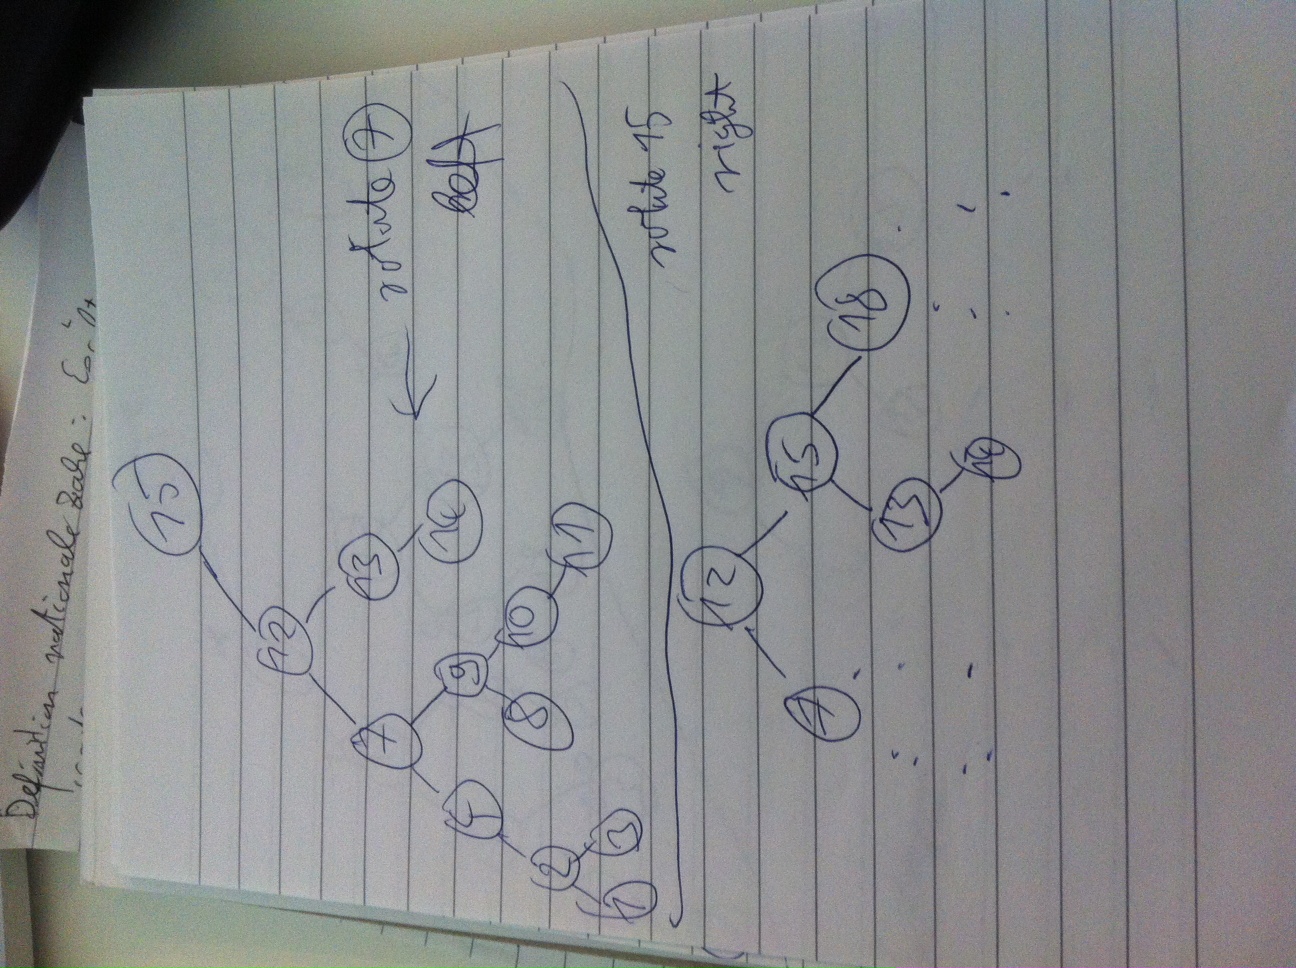 Definition nationale Zahl :
15
12
7 13
5 9 14
2 8 10
1 3 11
rotate 7
left
rotate 15
right
12
7 15
13 18
14